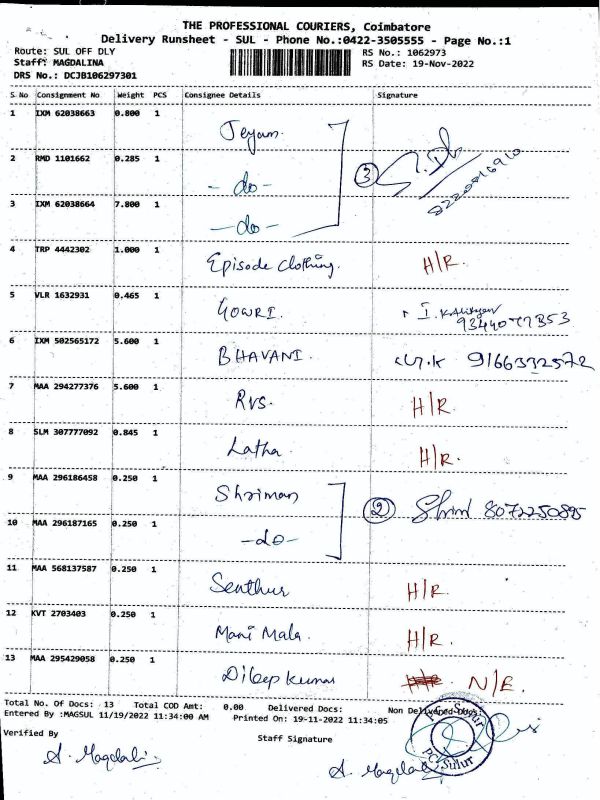 THE PROFESSIONAL COURIERS, Coimbatore
Delivery Runsheet - SUL - Phone No.:0422-3505555 - Page No.:1
Route: SUL OFF DLY RS No.: 1062973
Staff: MAGDALINA RS Date: 19-Nov-2022
DRS No.: DCJB106297301
S No Consignment No Weight PCS Consignee Details Signature
1 IXM 62038663 0.800 1 Jeyam.
2 RMD 1101662 0.285 1 - do - 3
3 IXM 62038664 7.800 1 - do -
4 TRP 4442302 1.000 1 Episode clothing. H/R.
5 VLR 1632931 0.465 1 GOWRI.
6 IXM 502565172 5.600 1 BHAVANI. 9166332572
7 MAA 294277376 5.600 1 Rvs. H/R.
8 SLM 307777092 0.845 1 Latha. H/R.
9 MAA 296186458 0.250 1 Shriman
2 8072250895
10 MAA 296187165 0.250 1 - do -
11 MAA 568137587 0.250 1 Senthur H/R.
12 KVT 2703403 0.250 1 Mani Mala. H/R.
13 MAA 295429058 0.250 1 Dileep kumar N/E.
Total No. Of Docs: 13 Total COD Amt: 0.00 Delivered Docs: Non Delivered Docs
Entered By :MAGSUL 11/19/2022 11:34:00 AM Printed On: 19-11-2022 11:34:05
Verified By Staff Signature
PC Sulur
PC Sulur